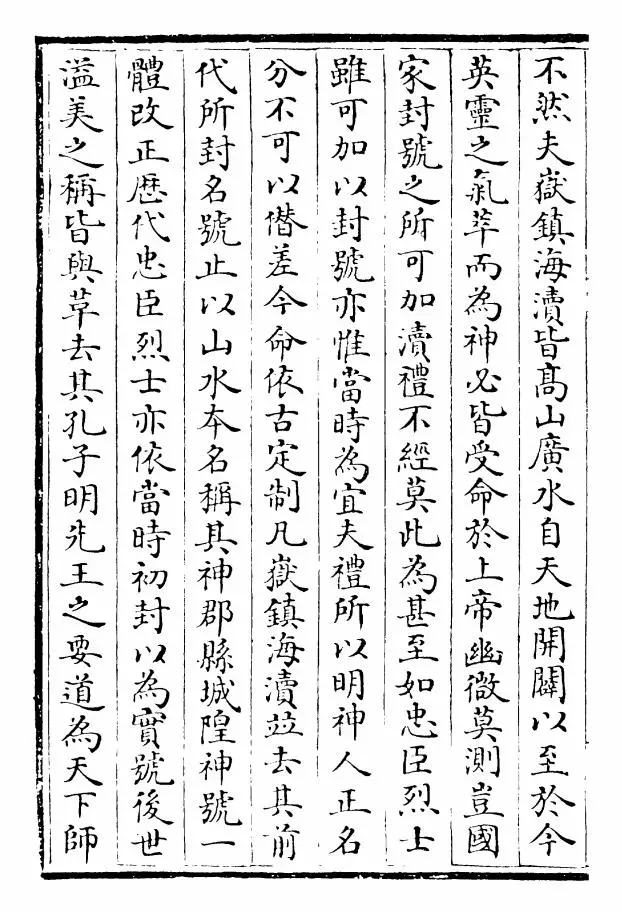 不然夫嶽鎮海瀆皆髙山廣水自天地開闢以至於今
英靈之氣萃而為神必皆受命於上帝幽微莫測豈國
家封號之所可加瀆禮不經莫此為甚至如忠臣烈士
雖可加以封號亦惟當時為宜夫禮所以明神人正名
分不可以僭差今命依古定制凡嶽鎮海瀆並去其前
代所封名號止以山水本名稱其神郡縣城隍神號一
體改正歴代忠臣烈士亦依當時初封以為實號後世
溢美之稱皆與革去其孔子明先王之要道為天下師